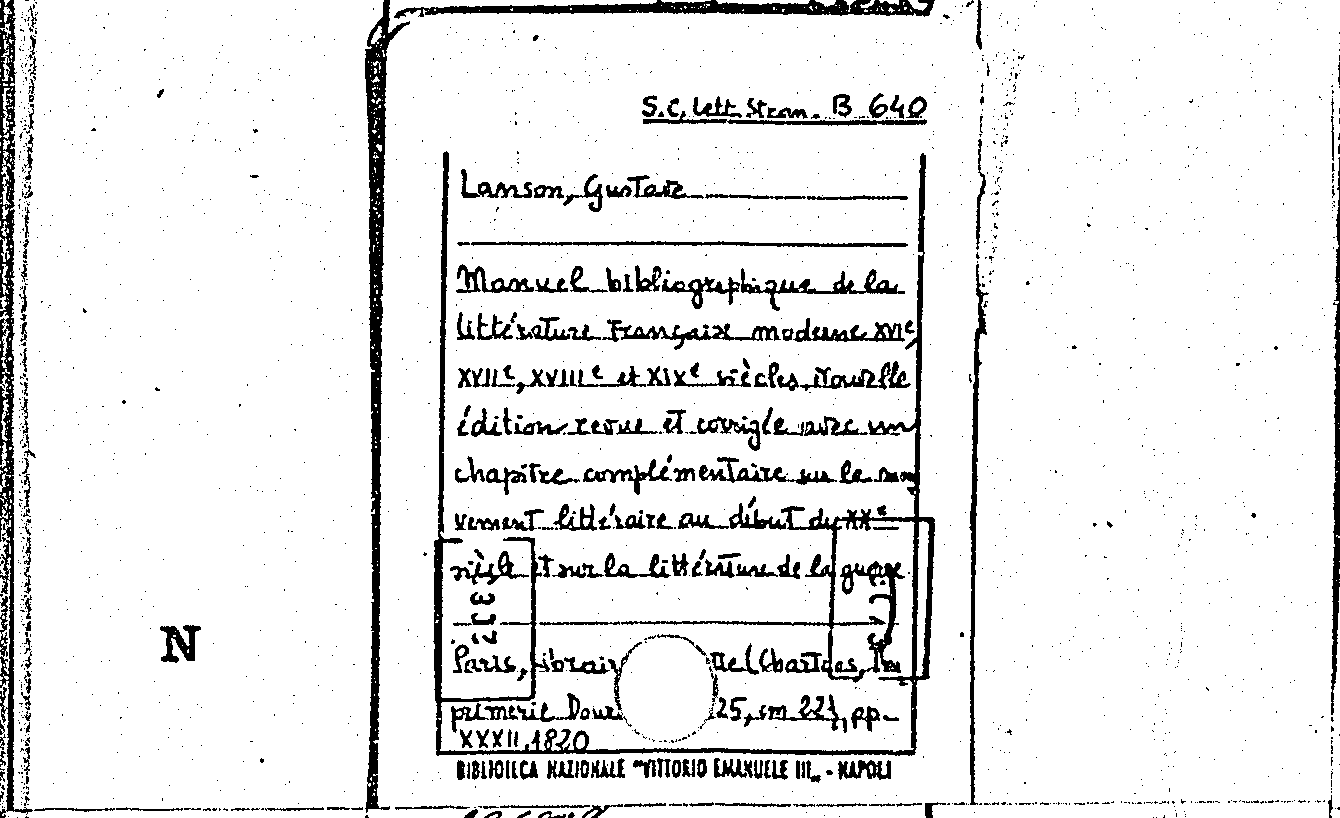 S.C. Lett. Stran. B 640
Lanson, Gustave
Manuel bibliographique de la
littérature française moderne XVIe,
XVIIe, XVIIIe et XIXe siècles. Nouvelle
édition revue et corrigée avec un
chapitre complémentaire sur le mou
vement littéraire au début du XXe
siècle et sur la littérature de la guerre
N
Paris, (Chartres, Im
primerie 25, cm 22), pp.
XXXII, 1820
BIBLIOTECA NAZIONALE "VITTORIO EMANUELE III„ - NAPOLI